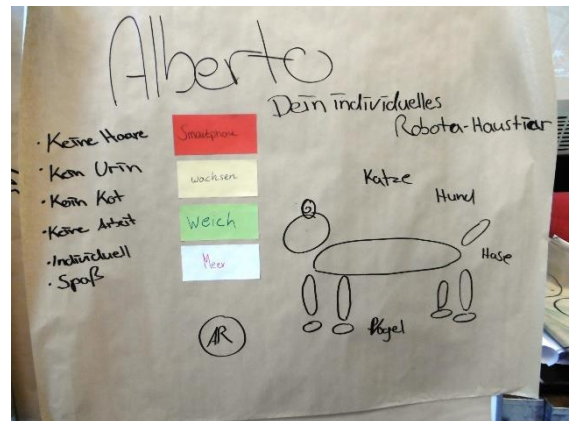 Alberto
Dein individuelles
Roboter-Haustier
· Keine Haare
· Kein Urin
· Kein Kot
· Keine Arbeit
· Individuell
· Spaß
Smartphone
wachsen
Weich
Meer
Katze
Hund
Hase
Vogel
AR